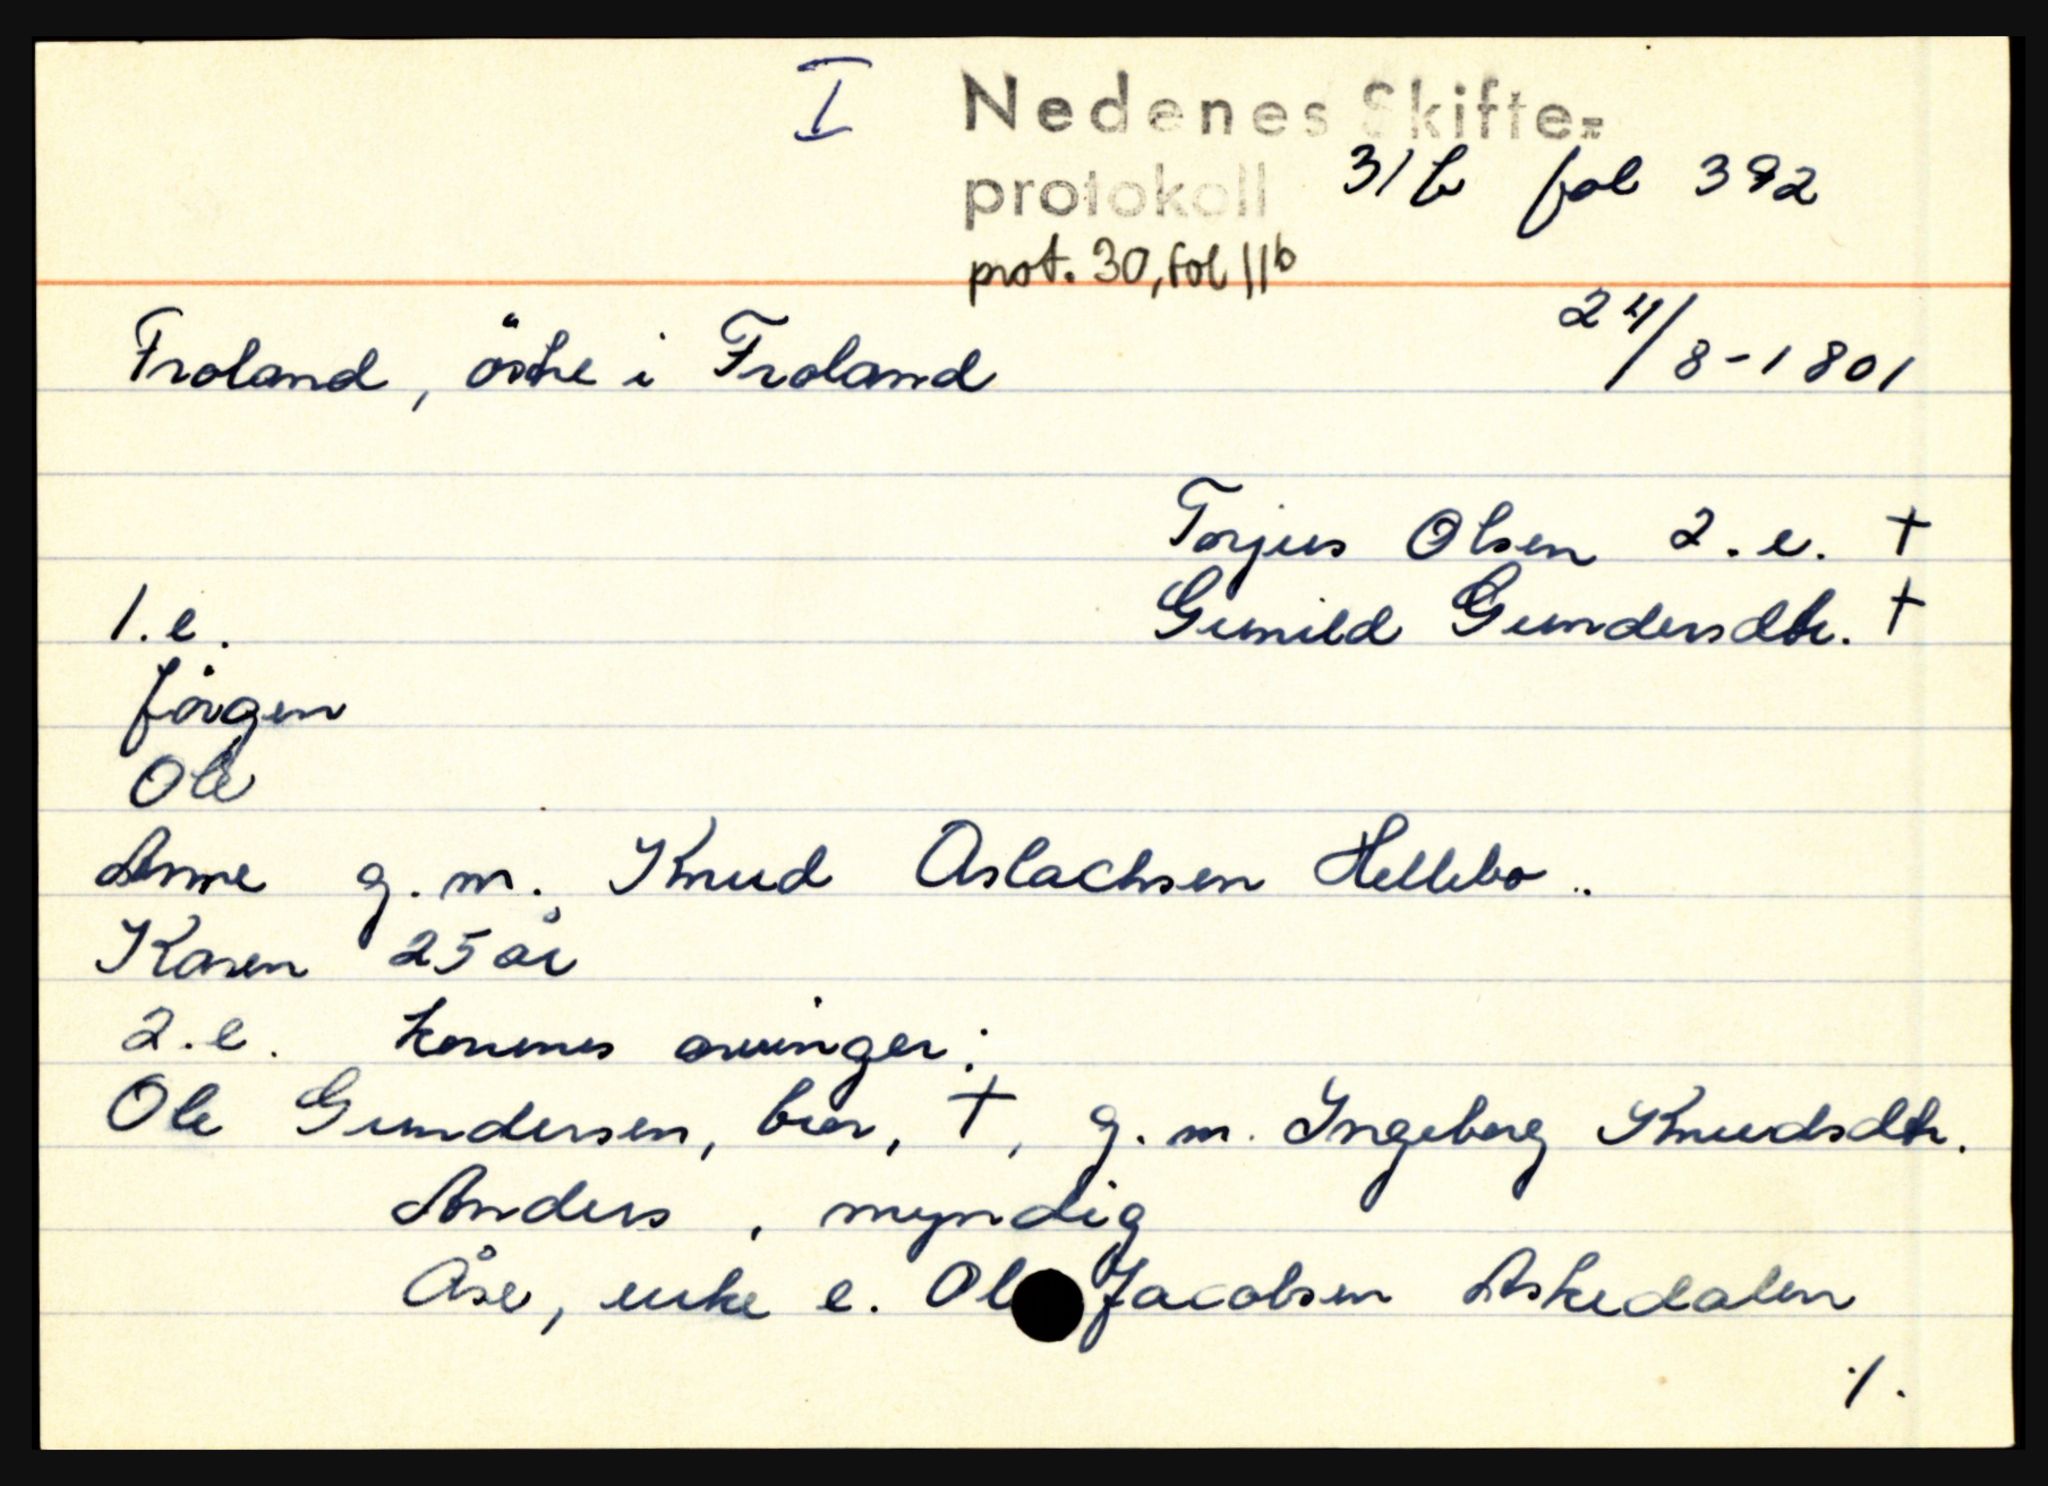 I Nedenes Skifte=
protokoll 31b fol 392
prot. 30, fol 11b
24/8-1801
Froland, östre i Froland
Torjus Olsen 2.e. †
Gunild Gundersdtr. †
1.e.
Jörgen
Ole
Anne g.m. Knud Aslachsen Hellebo..
Karen 25 år
2.e. konenes arvinger:
Ole Gundersen, bror, †, g.m. Ingeborg Knudsdtr.
Anders, myndig
Åse, enke e. Ol Jacobsen Askedalen
./.